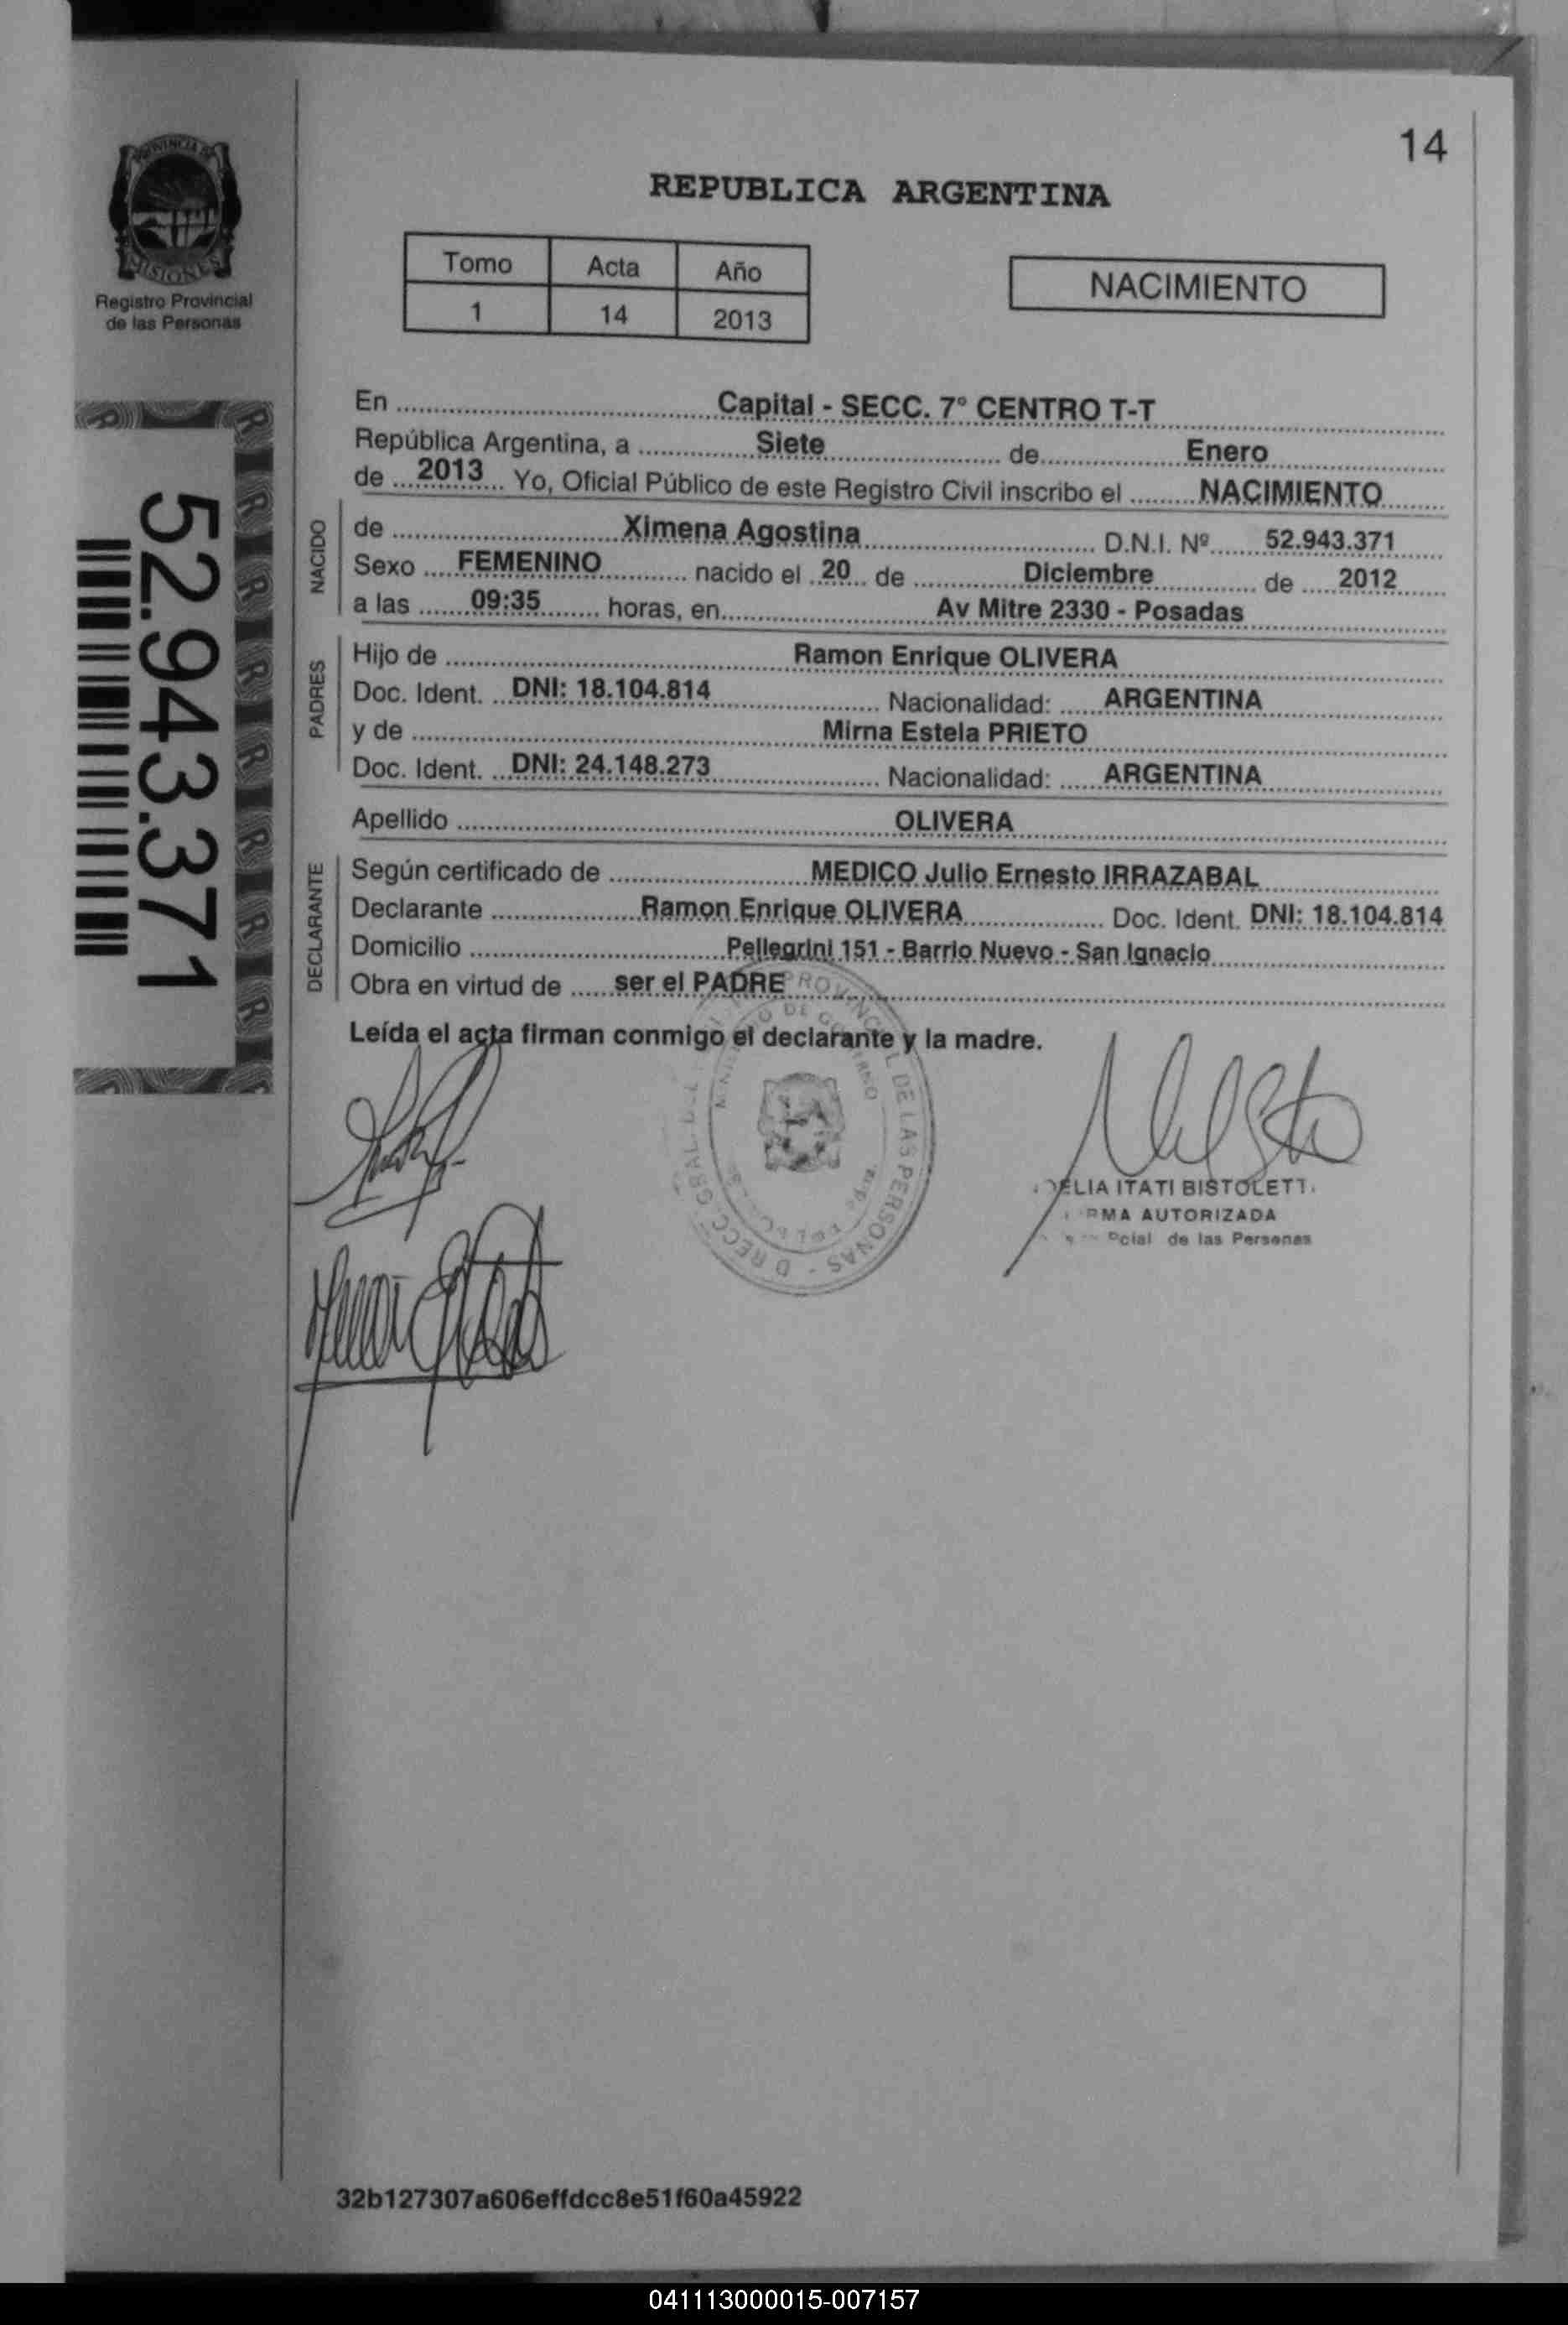 14
REPUBLICA ARGENTINA
PROVINCIA DE
MISIONES
Registro Provincial
de las Personas
Tomo Acta Año
1 14 2013
NACIMIENTO
52.943.371
En Capital - SECC. 7° CENTRO T-T
República Argentina, a Siete de Enero
de 2013 Yo, Oficial Público de este Registro Civil inscribo el NACIMIENTO
NACIDO
de Ximena Agostina D.N.I. Nº 52.943.371
Sexo FEMENINO nacido el 20 de Diciembre de 2012
a las 09:35 horas, en Av Mitre 2330 - Posadas
PADRES
Hijo de Ramon Enrique OLIVERA
Doc. Ident. DNI: 18.104.814 Nacionalidad: ARGENTINA
y de Mirna Estela PRIETO
Doc. Ident. DNI: 24.148.273 Nacionalidad: ARGENTINA
Apellido OLIVERA
DECLARANTE
Según certificado de MEDICO Julio Ernesto IRRAZABAL
Declarante Ramon Enrique OLIVERA Doc. Ident. DNI: 18.104.814
Domicilio Pellegrini 151 - Barrio Nuevo - San Ignacio
Obra en virtud de ser el PADRE
Leída el acta firman conmigo el declarante y la madre.
PROVINCIAL DE LAS PERSONAS
ITATI BISTOLETTI
AUTORIZADA
de las Personas
32b127307a606effdcc8e51f60a45922
041113000015-007157